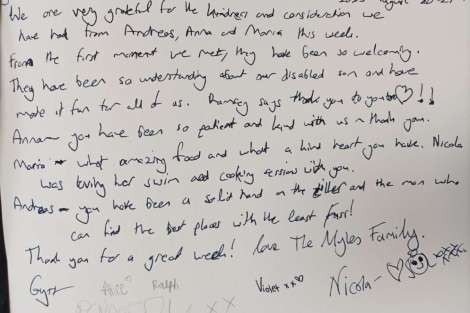 2023 August 20-27
We are very grateful for the kindness and consideration we
have had from Andreas, Anna and Maria this week.
From the first moment we met, they have been so welcoming.
They have been so understanding about our disabled son and have
made it fun for all of us. says thank you to you ♡!!
Anna – you have been so patient and kind with us – thank you.
Maria – what amazing food and what a kind heart you have. Nicola
was loving her swim and cooking session with you.
Andreas – you have been a solid hand on the tiller and the man who
can find the best places with the least fuss!
Thank you for a great week! love The Myles Family.
Alice Ralph Violet xx Nicola – ♡ xxxx
xx